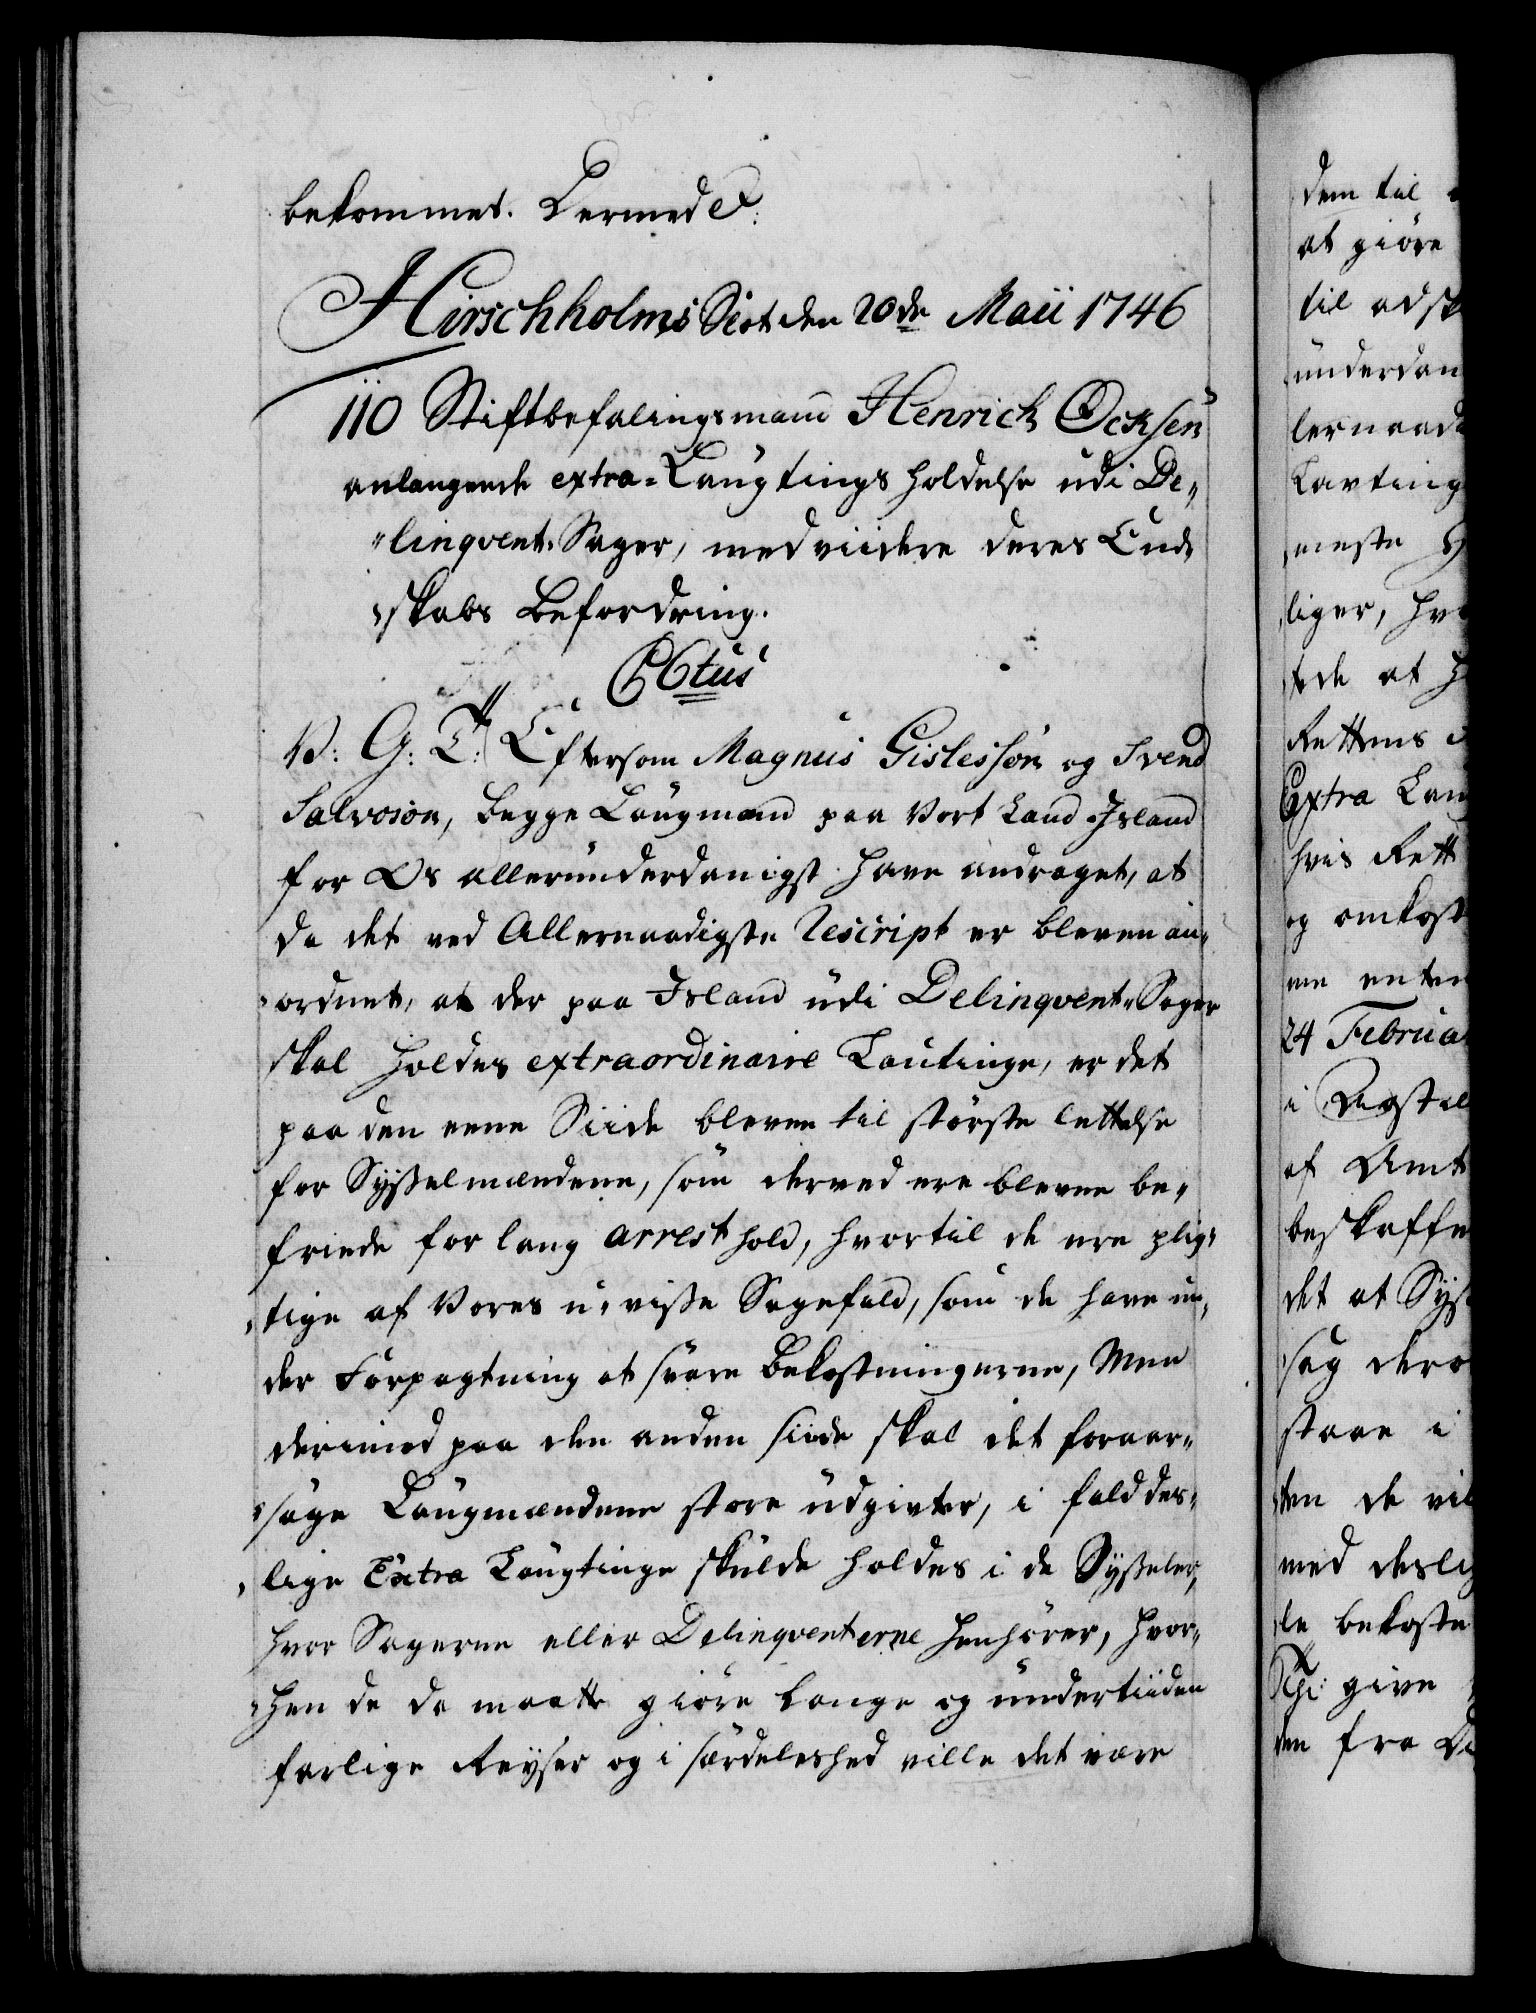 bekommet. Dermed &c:
Hirschholms Slot den 20de Maii 1746
110 Stiftbefalingsmand Henrich Ocksen
anlangende extra-Laugtings holdelse udi De-
linqvent-Sager, med viidere deres End-
skabs Befordring.
C6tus
V: G: T: Eftersom Magnus Gislesøn og Svend
Salvosøn, begge Laugmænd paa Vort Land Island
for Os allerunderdanigst have andraget, at
da det ved Allernaadigste Rescript er bleven an-
ordnet, at der paa Island udi Delinqvent-Sager
skal holdes extraordinaire Lautinge, er det
paa den eene Siide bleven til største lettelse
for Sysselmændene, som derved ere blevne be-
friede for lang arrest hold, hvortil de ere plig-
tige af Vores u-visse Sagefald, som de have un-
der Forpagtning at svare Bekostningerne, Men
derimod paa den anden siide skal det foraar-
sage Laugmændene store udgivter, i fald des-
lige Extra Laugtinge skulde holdes i de Sysseler,
hvor Sagerne eller Delinqventerne henhører, hvor-
hen de da maatte giøre lange og undertiiden
farlige Reyser og i særdeleshed ville det være
dem til
at giøre
til adsk
underdan
lernaad
Lavting
meste
liger, hv
stede at
Rettens
Extra Lau
hvis Rett
og omkost
me enten
24 Februa
i
af Amt
beskaffe
det at Sys
sag dero
staae i
ten de vil
med deslig
le bekoste
give
den fra